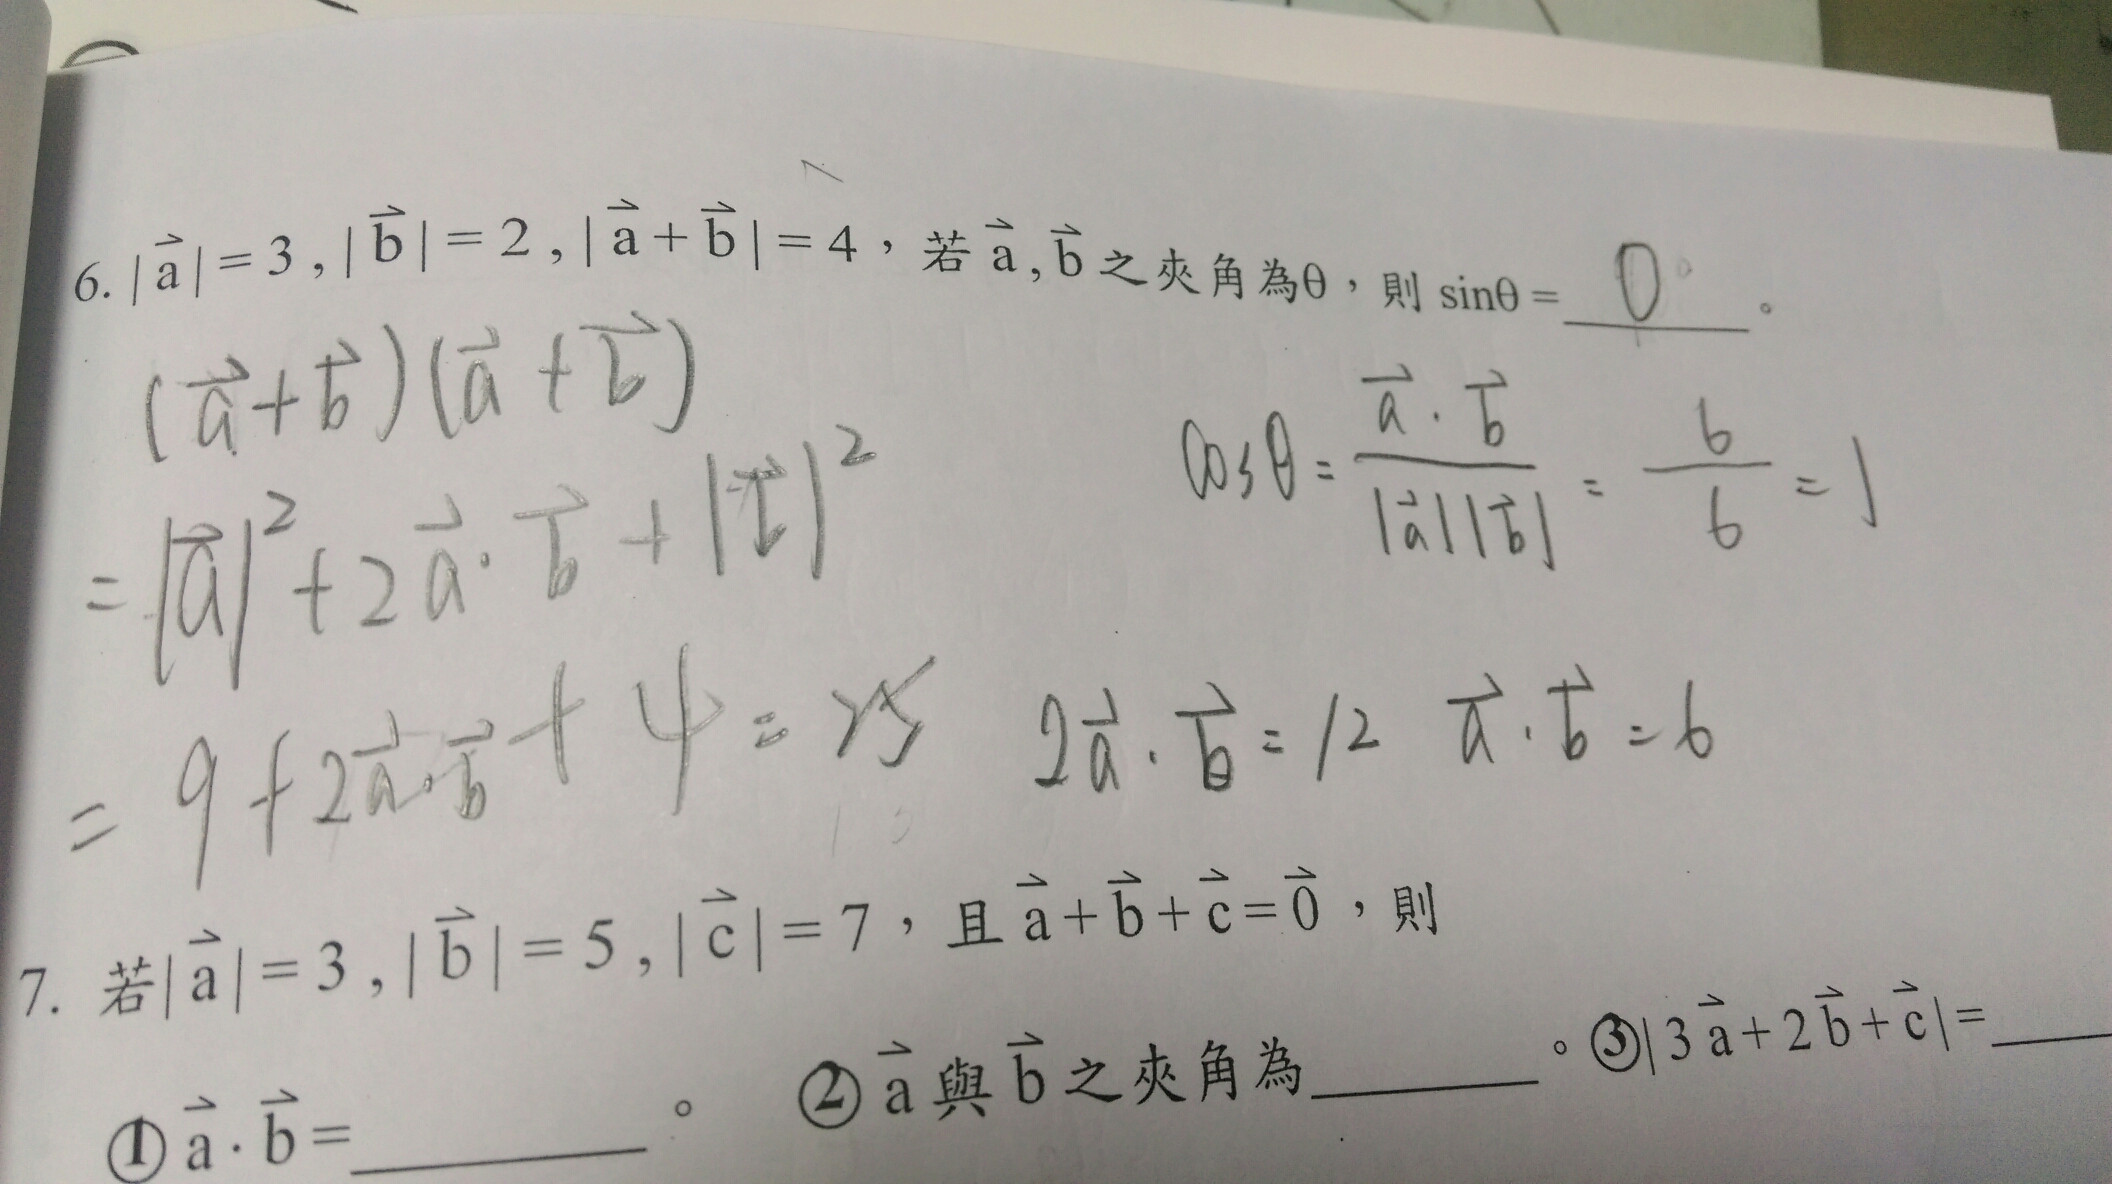 6. |a⃗| = 3 , |b⃗| = 2 , |a⃗ + b⃗| = 4，若 a⃗ , b⃗ 之夾角為θ，則 sinθ = 0°。
(a⃗ + b⃗)(a⃗ + b⃗)
= |a⃗|² + 2a⃗·b⃗ + |b⃗|²
= 9 + 2a⃗·b⃗ + 4 = 25
cosθ = a⃗·b⃗ / |a⃗||b⃗| = 6/6 = 1
2a⃗·b⃗ = 12 a⃗·b⃗ = 6
7. 若|a⃗| = 3 , |b⃗| = 5 , |c⃗| = 7，且 a⃗ + b⃗ + c⃗ = 0⃗，則
① a⃗·b⃗ = ______。 ② a⃗ 與 b⃗ 之夾角為______。③|3a⃗ + 2b⃗ + c⃗| = ___